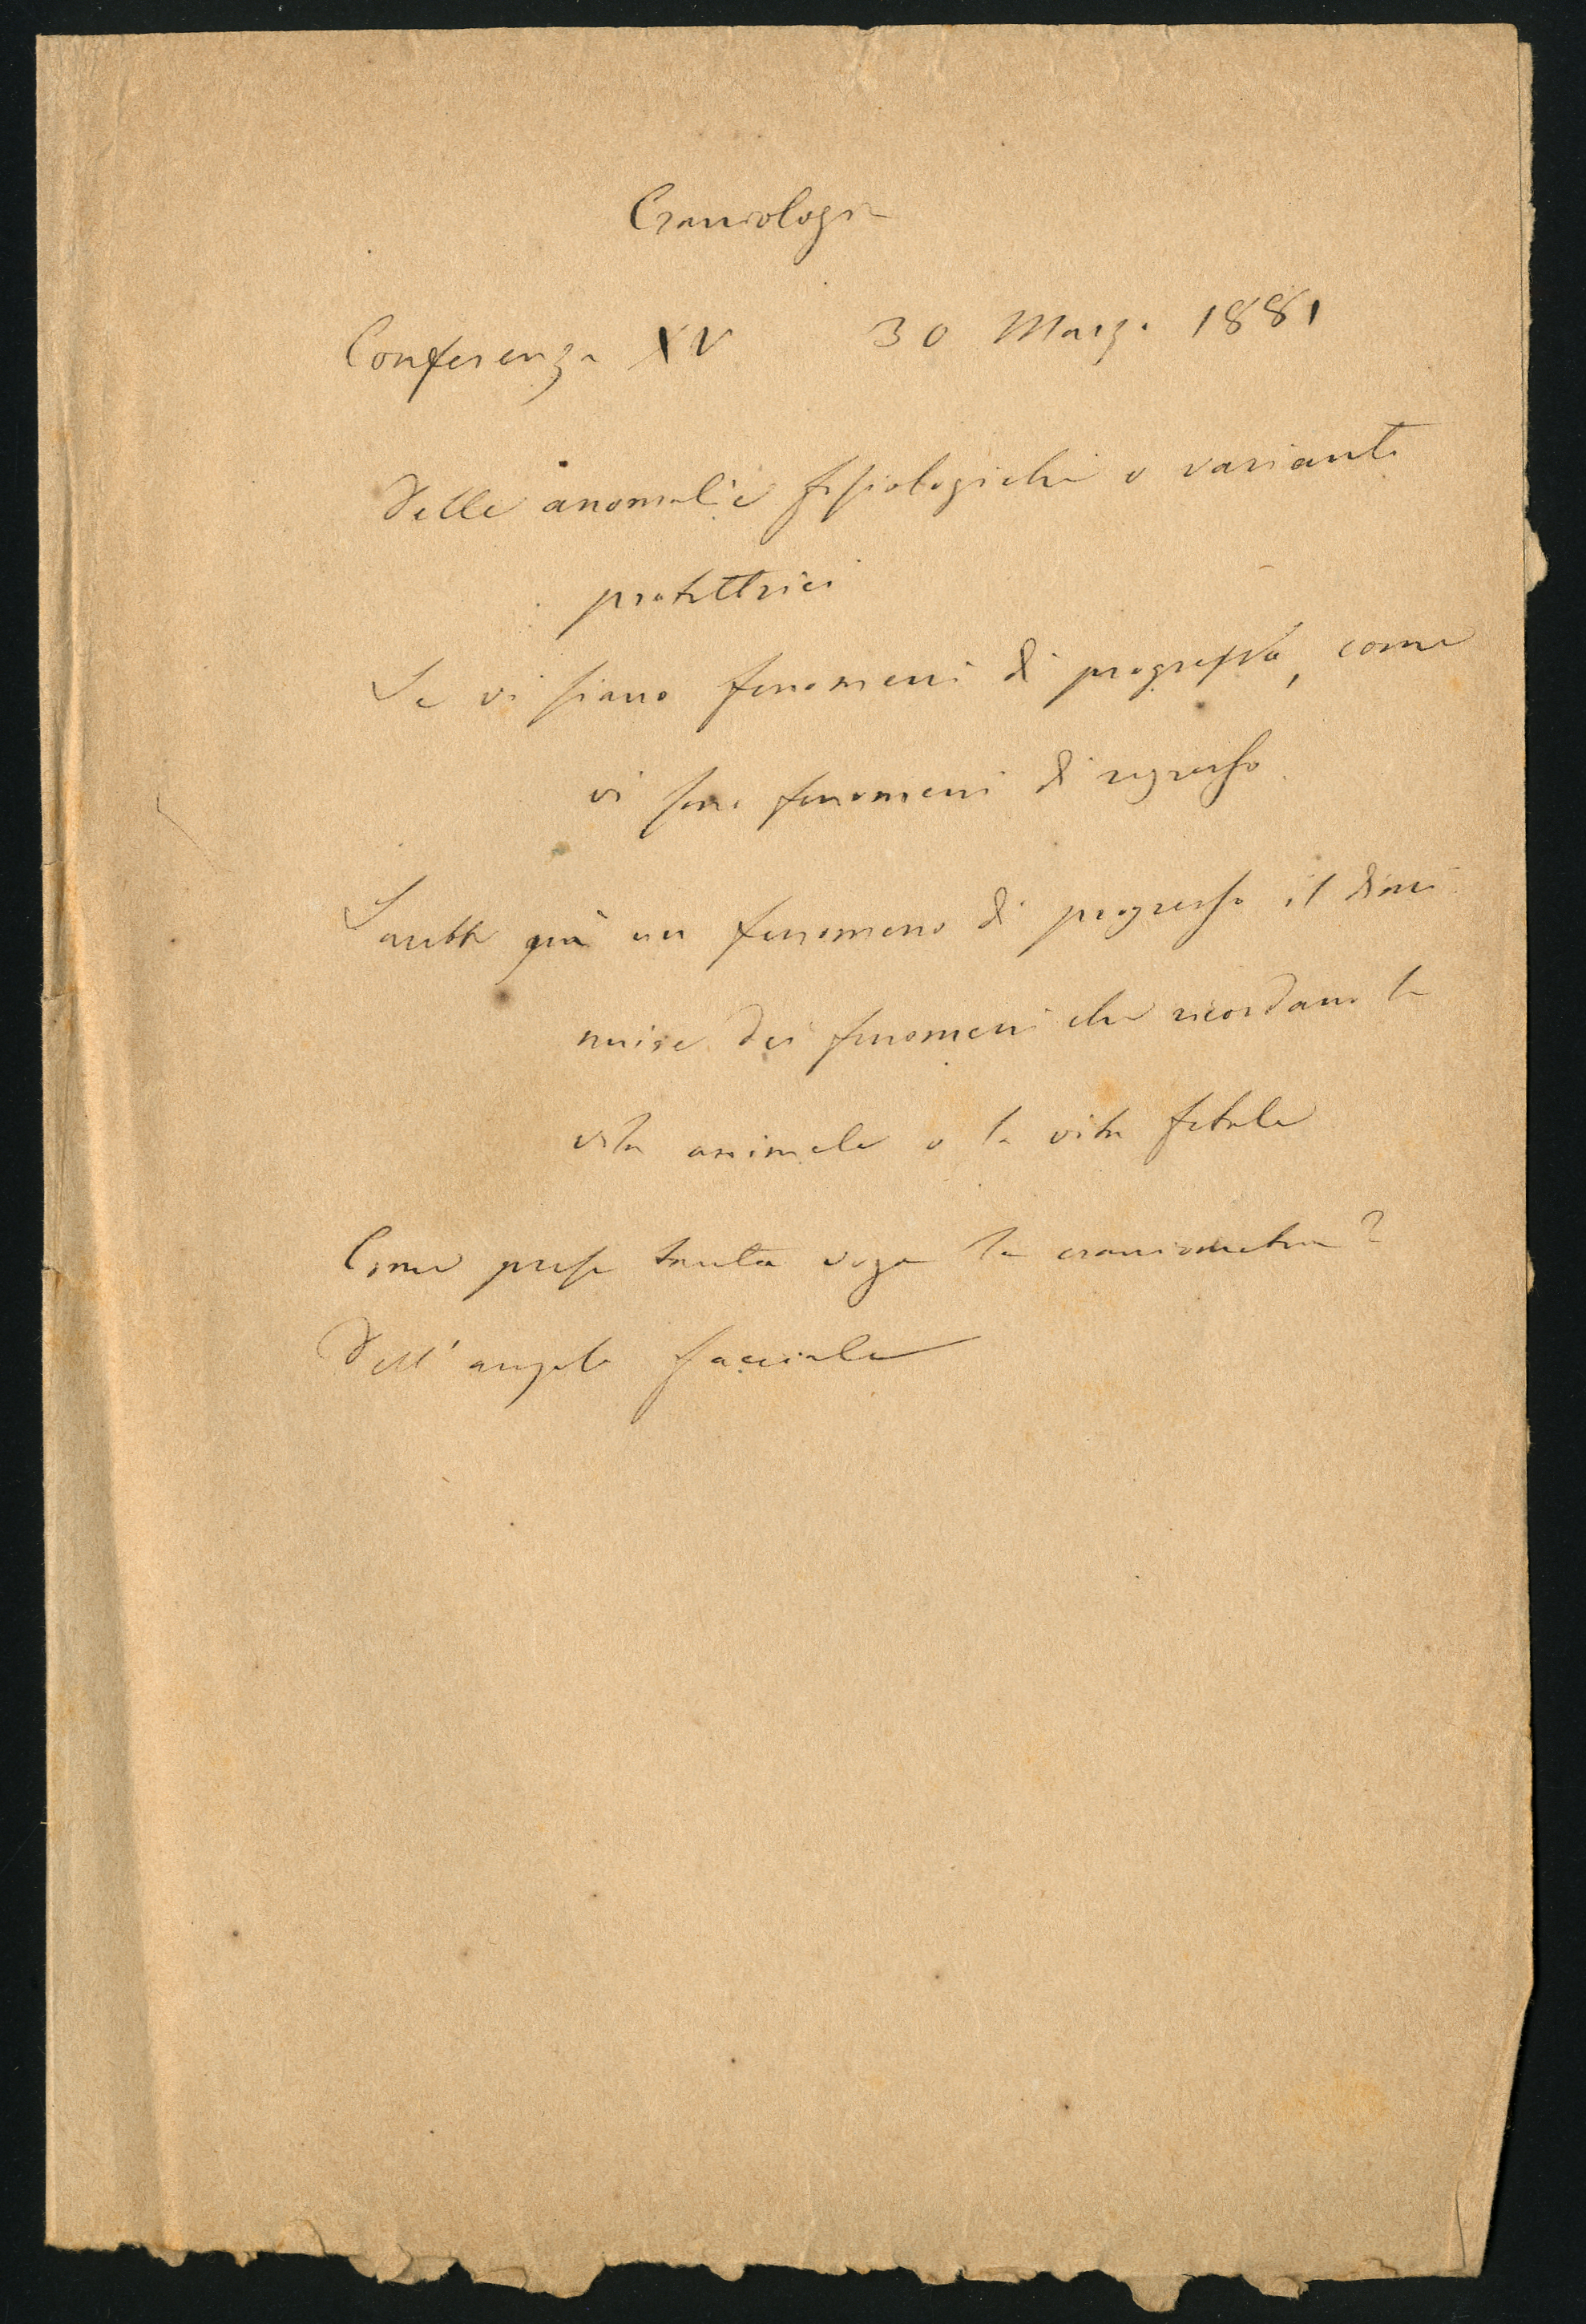 Craniologia
Conferenza XV 30 Marzo 1881
Delle anomalie fisiologiche o varianti
protettrici
Se vi siano fenomeni di progresso, come
vi sono fenomeni di regresso
Sarebbe già un fenomeno di progresso il dimi
nuire dei fenomeni che ricordano la
vita animale o la vita fetale
Come prese tanta voga la craniometria?
Dell'angolo facciale